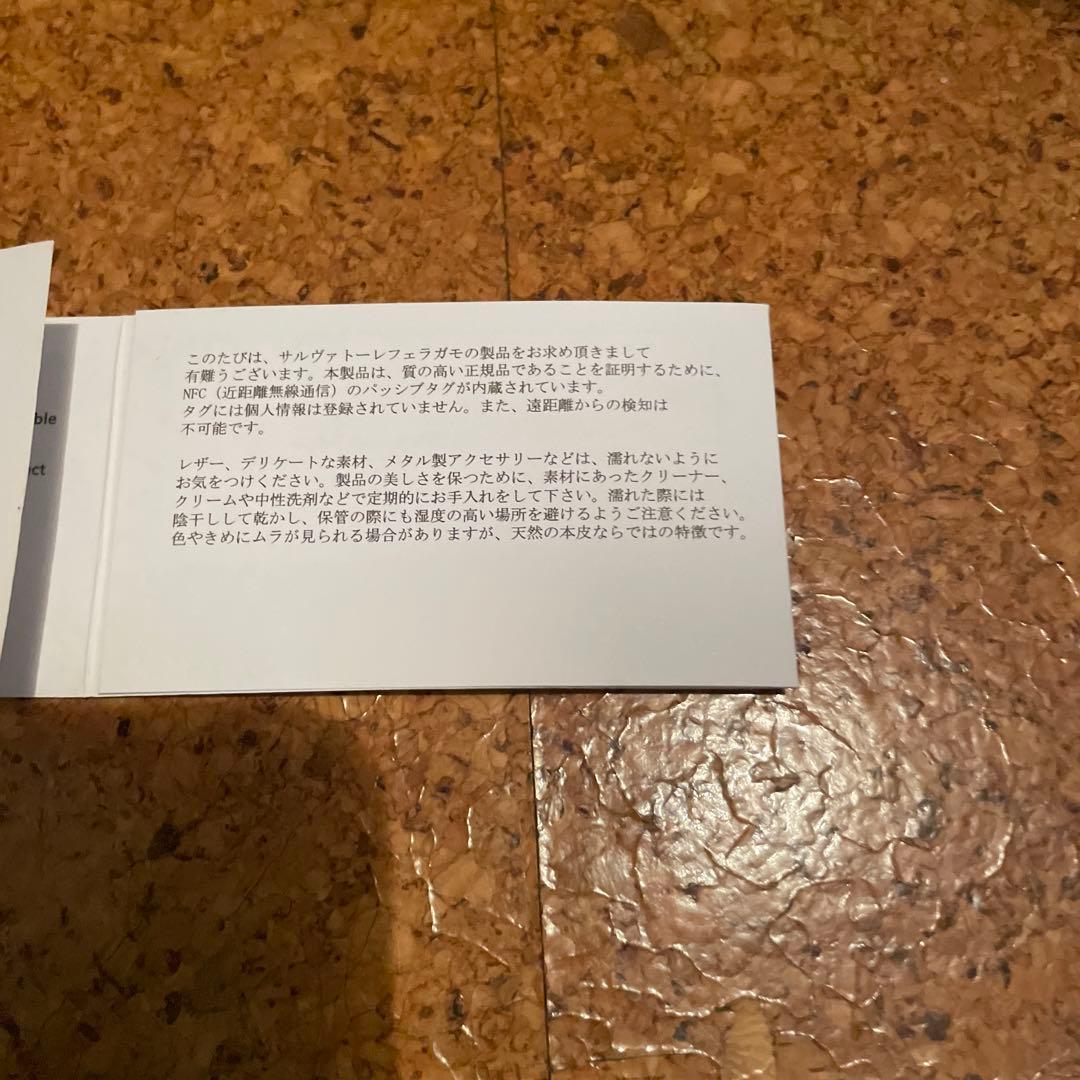 このたびは、サルヴァトーレフェラガモの製品をお求め頂きまして
有難うございます。本製品は、質の高い正規品であることを証明するために、
NFC（近距離無線通信）のパッシブタグが内蔵されています。
タグには個人情報は登録されていません。また、遠距離からの検知は
不可能です。
レザー、デリケートな素材、メタル製アクセサリーなどは、濡れないように
お気をつけください。製品の美しさを保つために、素材にあったクリーナー、
クリームや中性洗剤などで定期的にお手入れをして下さい。濡れた際には
陰干しして乾かし、保管の際にも湿度の高い場所を避けるようご注意ください。
色やきめにムラが見られる場合がありますが、天然の本皮ならではの特徴です。